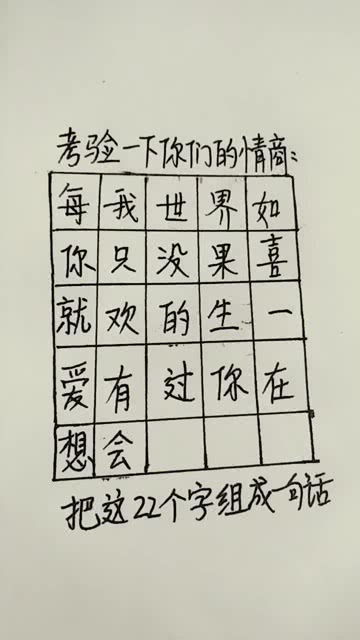 考验一下你们的情商:
每我世界如
你只没果喜
就欢的生一
爱有过你在
想会
把这22个字组成一句话